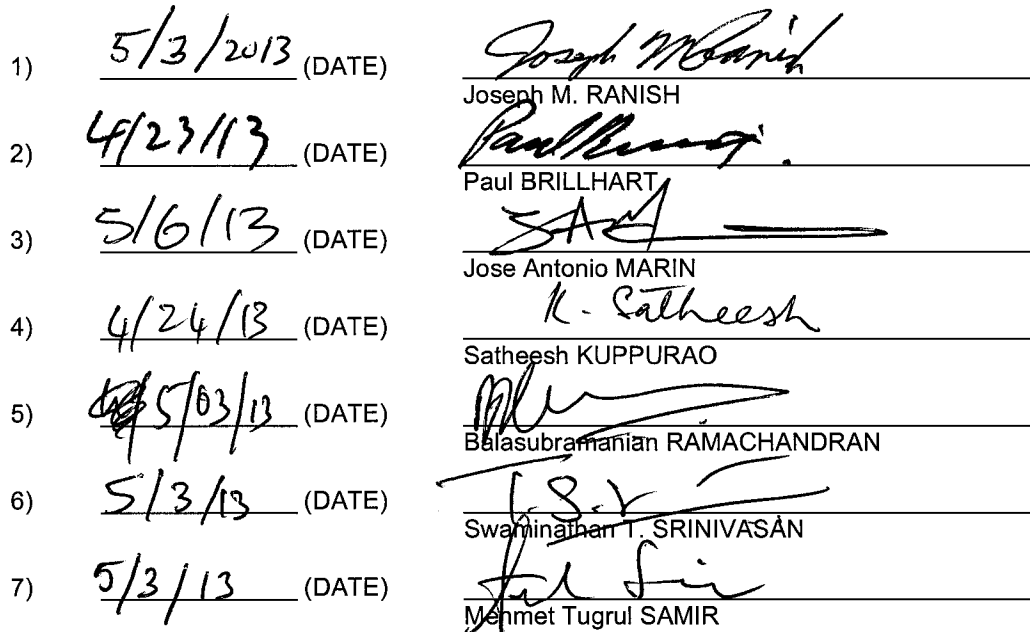 1) 5/3/2013 (DATE) Joseph M Ranish
Joseph M. RANISH
2) 4/23/13 (DATE) Paul
Paul BRILLHART
3) 5/6/13 (DATE)
Jose Antonio MARIN
4) 4/24/13 (DATE) K. Satheesh
Satheesh KUPPURAO
5) 5/03/13 (DATE)
Balasubramanian RAMACHANDRAN
6) 5/3/13 (DATE) T.S.
Swaminathan T. SRINIVASAN
7) 5/3/13 (DATE)
Mehmet Tugrul SAMIR